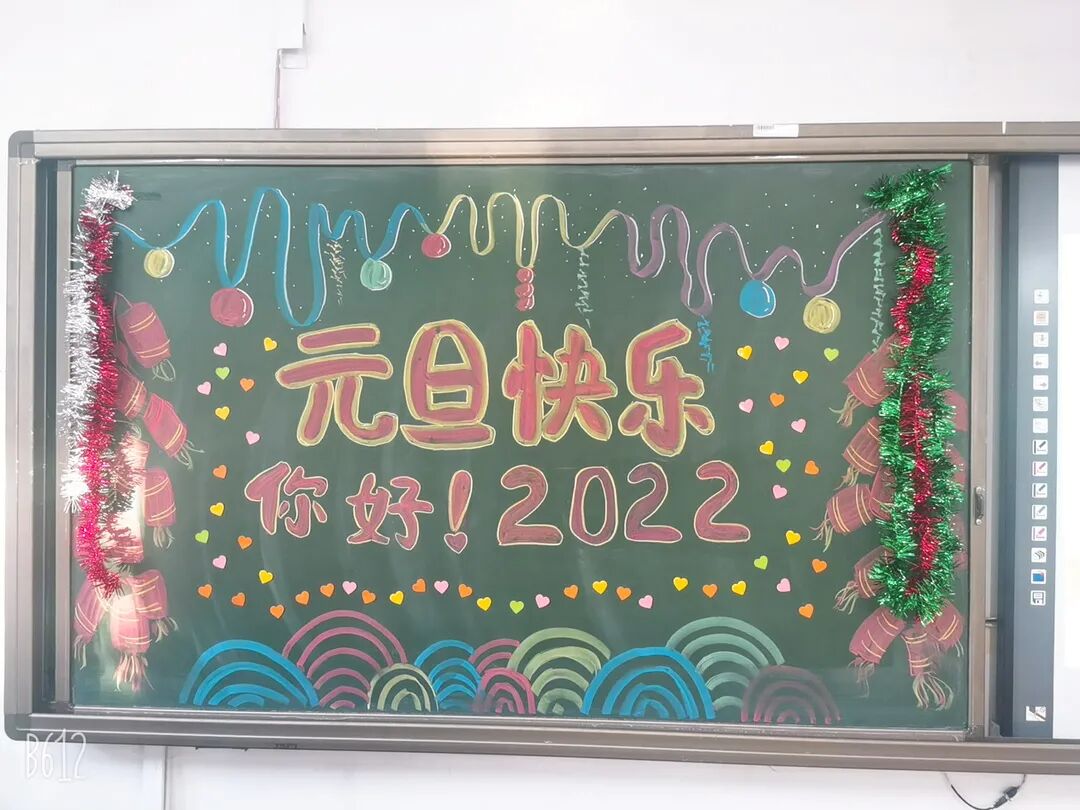 元旦快乐
你好！2022
B612